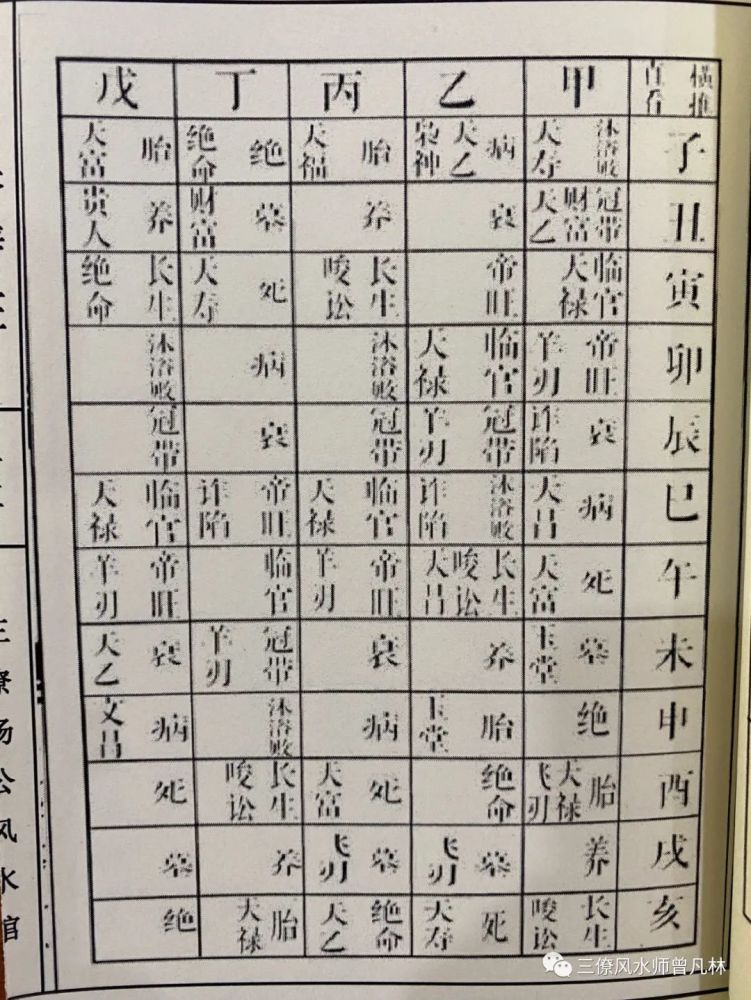 横推直看 甲 乙 丙 丁 戊
子 沐浴败 天寿 病 天乙 枭神 胎 天福 绝 绝命 胎 天富
丑 冠带 财富 天乙 衰 养 墓 财富 养 贵人
寅 临官 天禄 帝旺 长生 唆讼 死 天寿 长生 绝命
卯 帝旺 羊刃 临官 天禄 沐浴败 病 沐浴败
辰 衰 诈陷 冠带 羊刃 冠带 衰 冠带
巳 病 天吕 沐浴败 诈陷 临官 天禄 帝旺 诈陷 临官 天禄
午 死 天富 长生 唆讼 天吕 帝旺 羊刃 临官 帝旺 羊刃
未 墓 玉堂 养 衰 冠带 羊刃 衰 天乙
申 绝 胎 玉堂 病 沐浴败 病 文昌
酉 胎 天禄 飞刃 绝命 死 天富 长生 唆讼 死
戌 养 墓 飞刃 墓 飞刃 养 墓
亥 长生 唆讼 死 天寿 绝命 天乙 胎 天禄 绝
三僚杨公风水馆
三僚风水师曾凡林